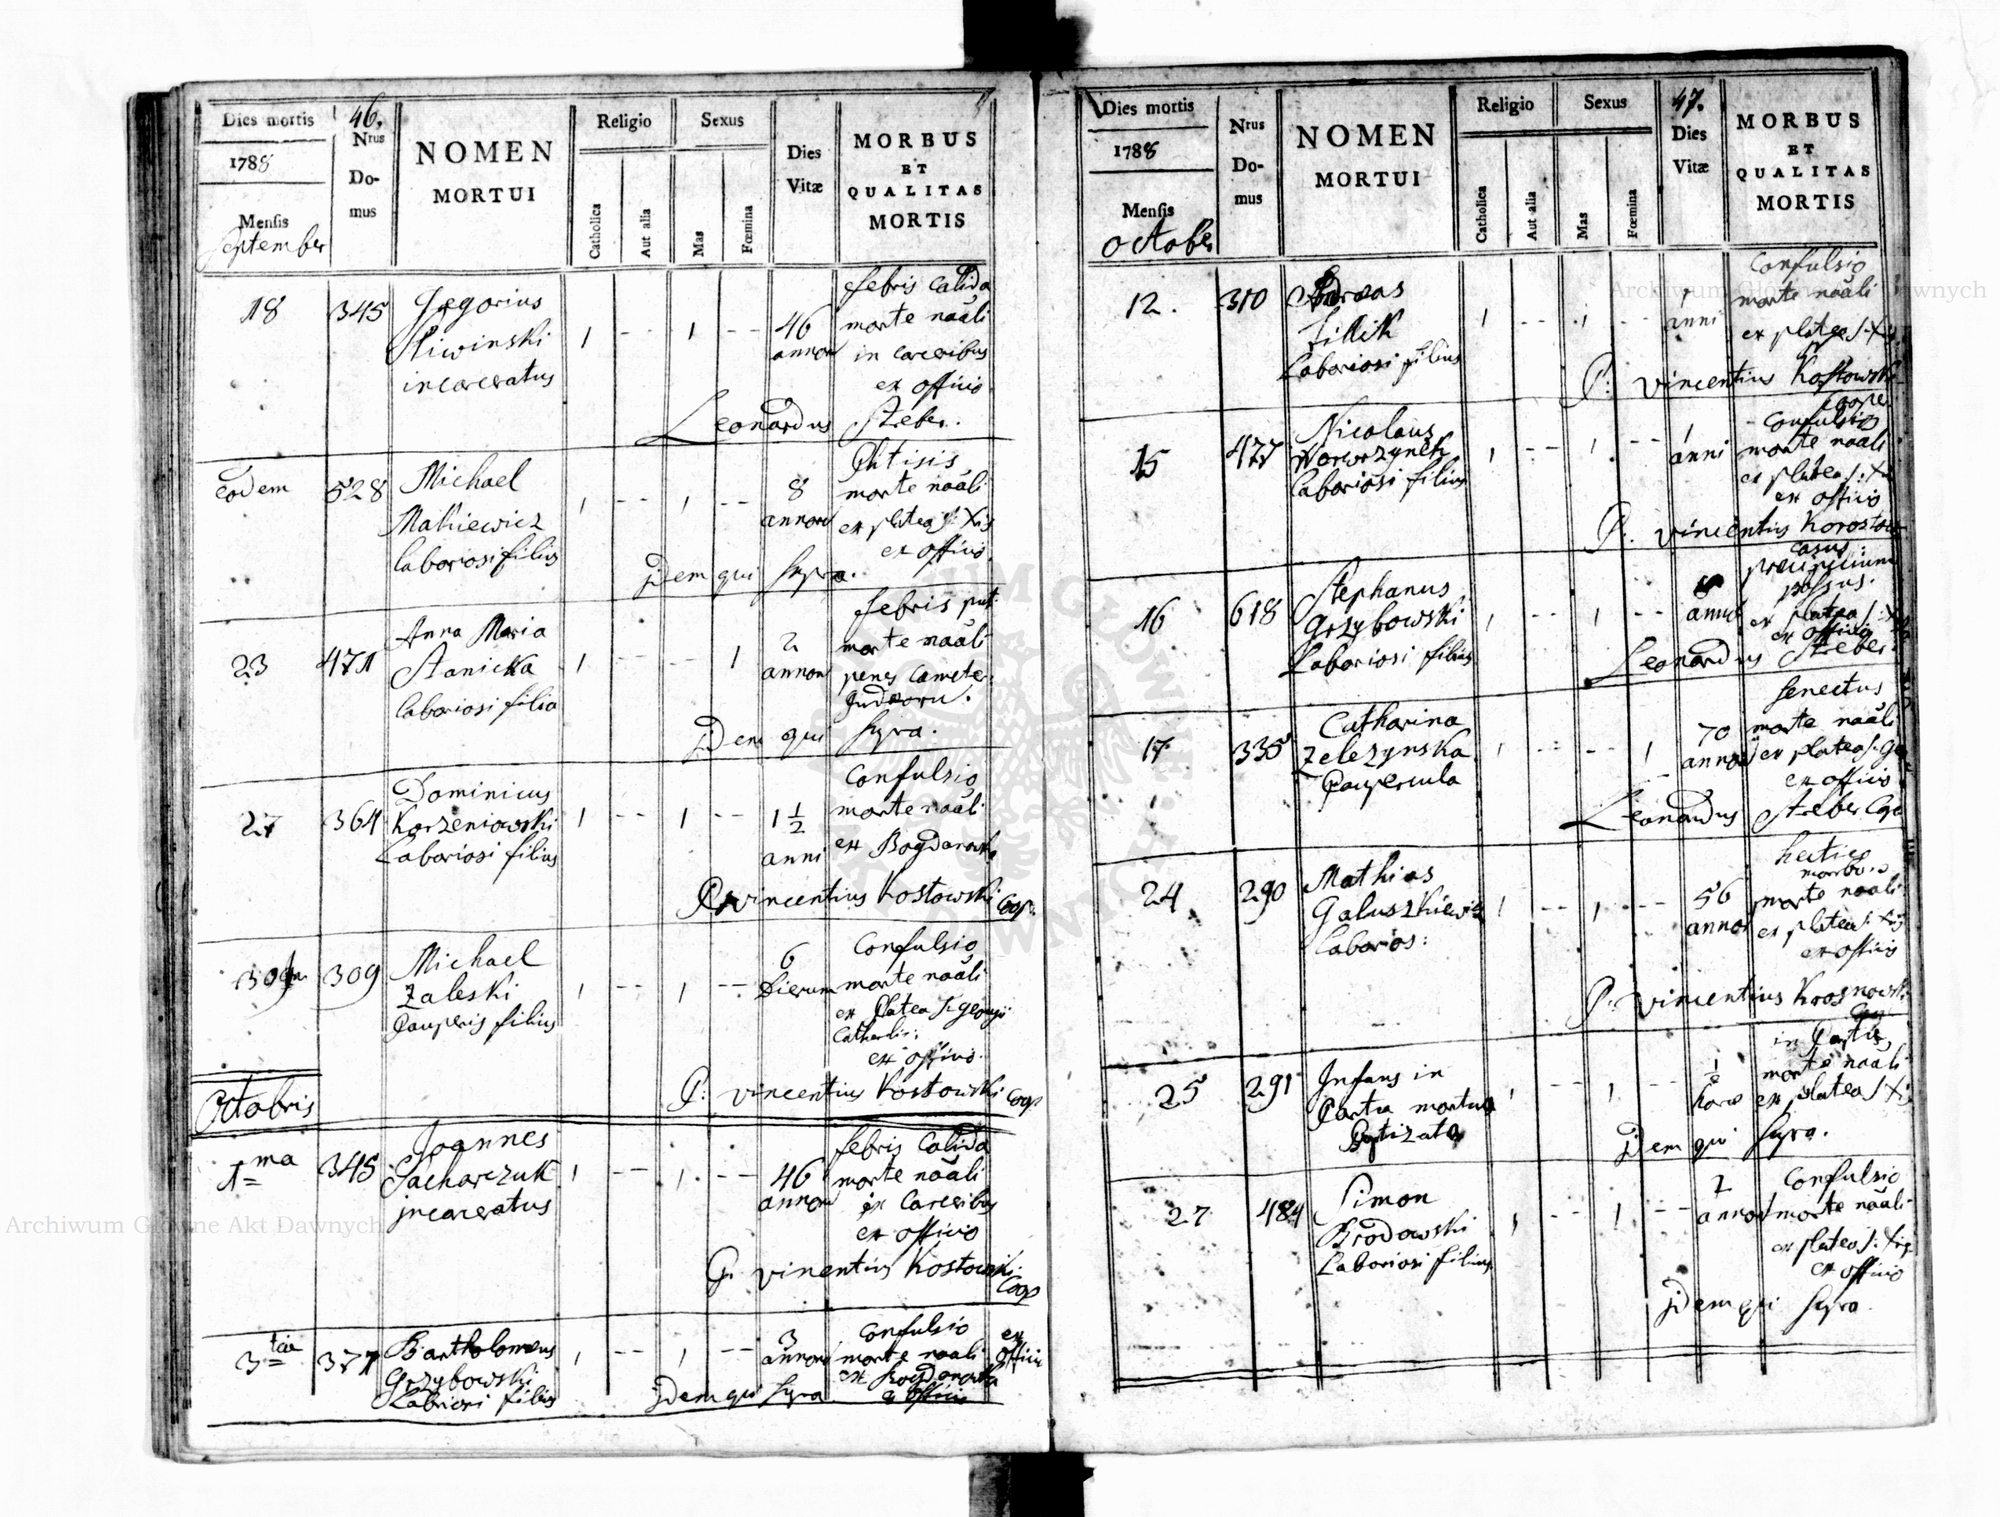 46.
Dies mortis
1788
Mensis
September
Nrus
Do-
mus
NOMEN
MORTUI
Religio
Catholica
Aut alia
Sexus
Mas
Fœmina
Dies
Vitæ
MORBUS
ET
QUALITAS
MORTIS
18 345 Gregorius
Sliwinski
incarceratus
1 -- 1 -- 46
annor
febris calida
morte naãli
in carceribus
ex officio
Leonardus Streber.
eodem 528 Michael
Mackiewicz
laboriosi filius
1 -- 1 -- 8
annor
Phtisis
morte naãli
ex platea S: Xis
ex officio
Idem qui supra.
23 471 Anna Maria
Stanicka
laboriosi filia
1 -- -- 1 2
annor
febris put:
morte naãli
penes Cæmeter:
Judæoru.
Idem qui supra.
27 364 Dominicus
Korzeniowski
Laboriosi filius
1 -- 1 -- 1 1/2
anni
Confulsio
morte naãli
ex Bogdanowka
P: vincentius Kostowski Coop:
30 309 Michael
Zaleski
Pauperis filius
1 -- 1 -- 6
Dierum
Confulsio
morte naãli
ex Platea S: Georgii
ex officio
P: vincentius Kostowski Coop
Octobris
1ma 345 Joannes
Sacharczuk
incarceratus
1 -- 1 -- 46
annor
febris calida
morte naãli
in Carceribus
ex officio
P. vincentius Kostowski
Coop
3tia 377 Bartholomeus
Grzybowski
Laboriosi filius
1 -- 1 -- 3
annor
Confulsio
morte naali
ex Bogdanowka
ex officio
Idem qui supra
47.
Dies mortis
1788
Mensis
October
Nrus
Do-
mus
NOMEN
MORTUI
Religio
Catholica
Aut alia
Sexus
Mas
Fœmina
Dies
Vitæ
MORBUS
ET
QUALITAS
MORTIS
12. 310 Andreas
Laboriosi filius
1 -- 1 -- 1
anni
Confulsio
morte naãli
ex platea S: Xis
P: vincentius Kostowski
Coope
15 477 Nicolaus
Wawrzynek
laboriosi filius
1 -- 1 -- 1
anni
Confulsio
morte naãli
ex platea S: Xis
ex officio
P: vincentius
16 618 Stephanus
Grzybowski
Laboriosi filius
1 -- 1 --
casus:
precipicium
passus.
ex platea S: Xis
ex officio
Leonardus Streber
17 335 Catharina
Zelezynska
Paupercula
1 -- -- 1 70
annor
Senectus
morte naãli
ex platea S: Ge
ex officio
Leonardus Streber Cop
24 290 Mathias
Galuszkiewicz
laborios:
1 -- 1 -- 56
annor
hectico
morbo
morte naãli
ex platea S: Xis
ex officio
P: vincentius
25 291 Infans in
Partu mortuo
Baptizato
1 -- 1 -- 1
horæ
in Partu
morte naãli
ex platea S: Xis
Idem qui supra.
27 484 Simon
Brodowski
Laboriosi filius
1 -- 1 -- 2
annor
Confulsio
morte naãli
ex platea S: Xis
ex officio
Idem qui supra
Archiwum Główne Akt Dawnych
Archiwum Główne Akt Dawnych
ARCHIWUM GŁÓWNE AKT DAWNYCH